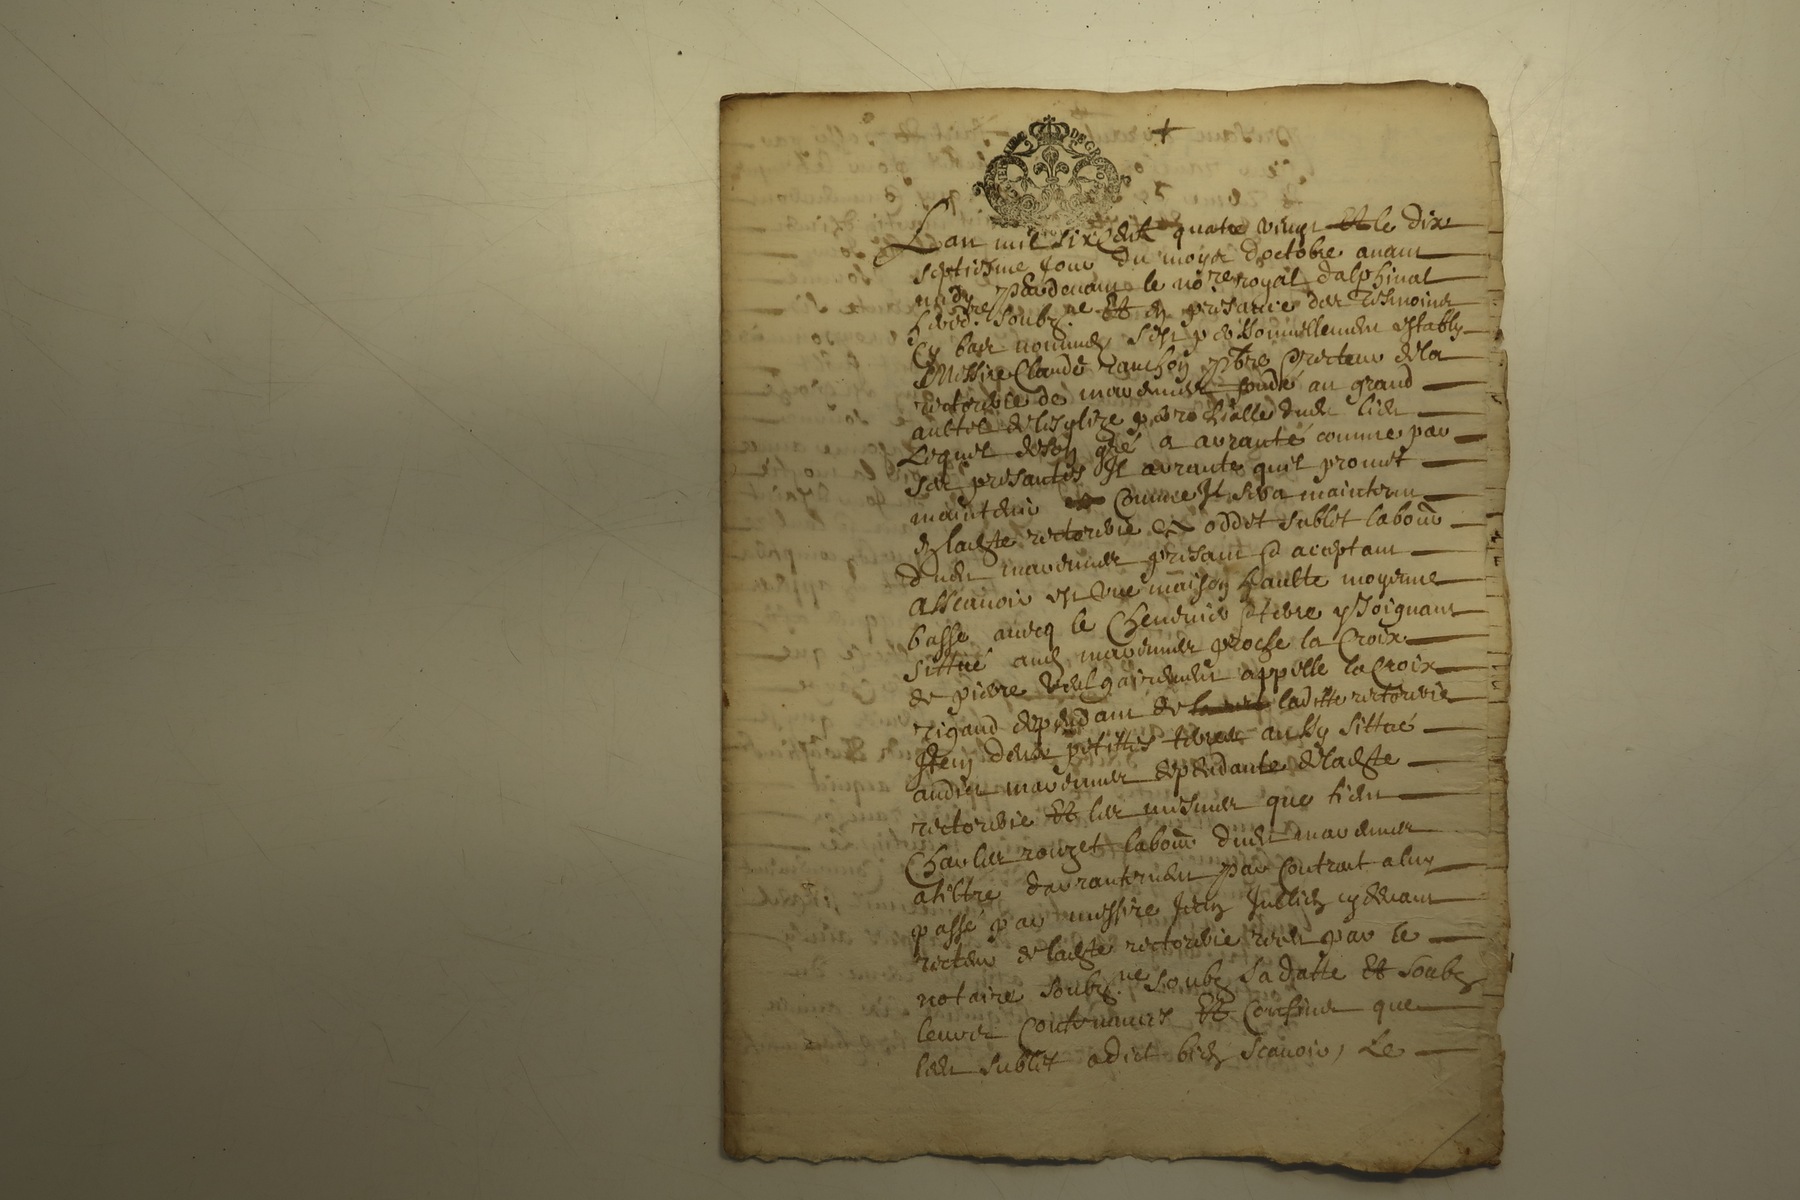 DE GR
Lan mil six Cent quatre vingt et le dix
septiesme Jour du moys doctobre avant
midy Pardevant le no.re royal dalphinal
hered.re soubz.ne Et en presance des tesmoins
Cy bas nommes sest personnellement estably
Messire Claude pbre recteur de la
rectorerie de fonde au grand
aultel de lesglize parrochialle dudit lieu
Lequel de son gré a arranté comme par
ses presantes Il arrante quil promet
maintenir Comme Il sera maintenu
de ladite rectorerie a oddet sublet labour
dudit presant et aceptant
Asscauoir est une maison haulte moyenne
basse auecq le terre y Joignant
sittué aud proche la Croix
de pierre vulgairement appelle la Croix
rigaud dependant de laditte rectorerie
Item deux petittes terres aussy sittué
audit dependante de ladite
rectorerie Et les mesmes que tient
Charles rouzet labour dudit
a tiltre darrantement par Contrait a luy
passé par messire Jean Jullien cy devant
recteur de ladite rectorerie receu par le
notaire soubz.ne soubz sa datte Et soubz
leurs Contenances Et Confins que
led sublet a dict bien scauoir, Le